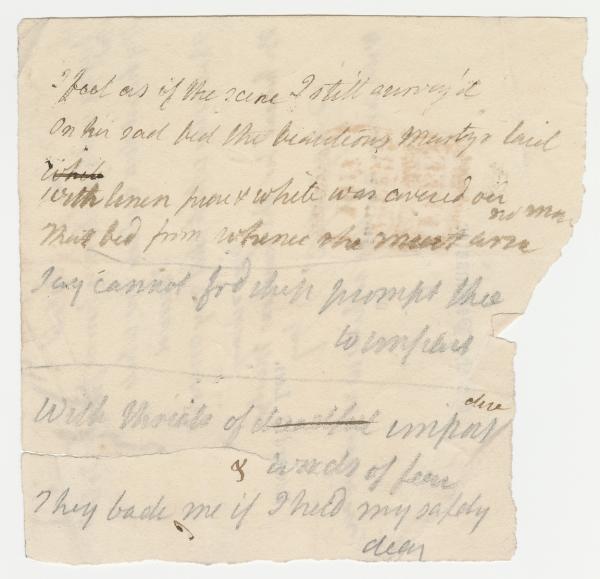 I feel as if the scene I still survey'd
On her sad bed the beauteous Martyr laid
Whil
With linen pure & white was covered oer
no mor
That bed from whence she must arise
Say cannot frdship prompt thee
to impart
With threats of dreadful import
dire
& words of fear
They bade me if I held my safety
dear